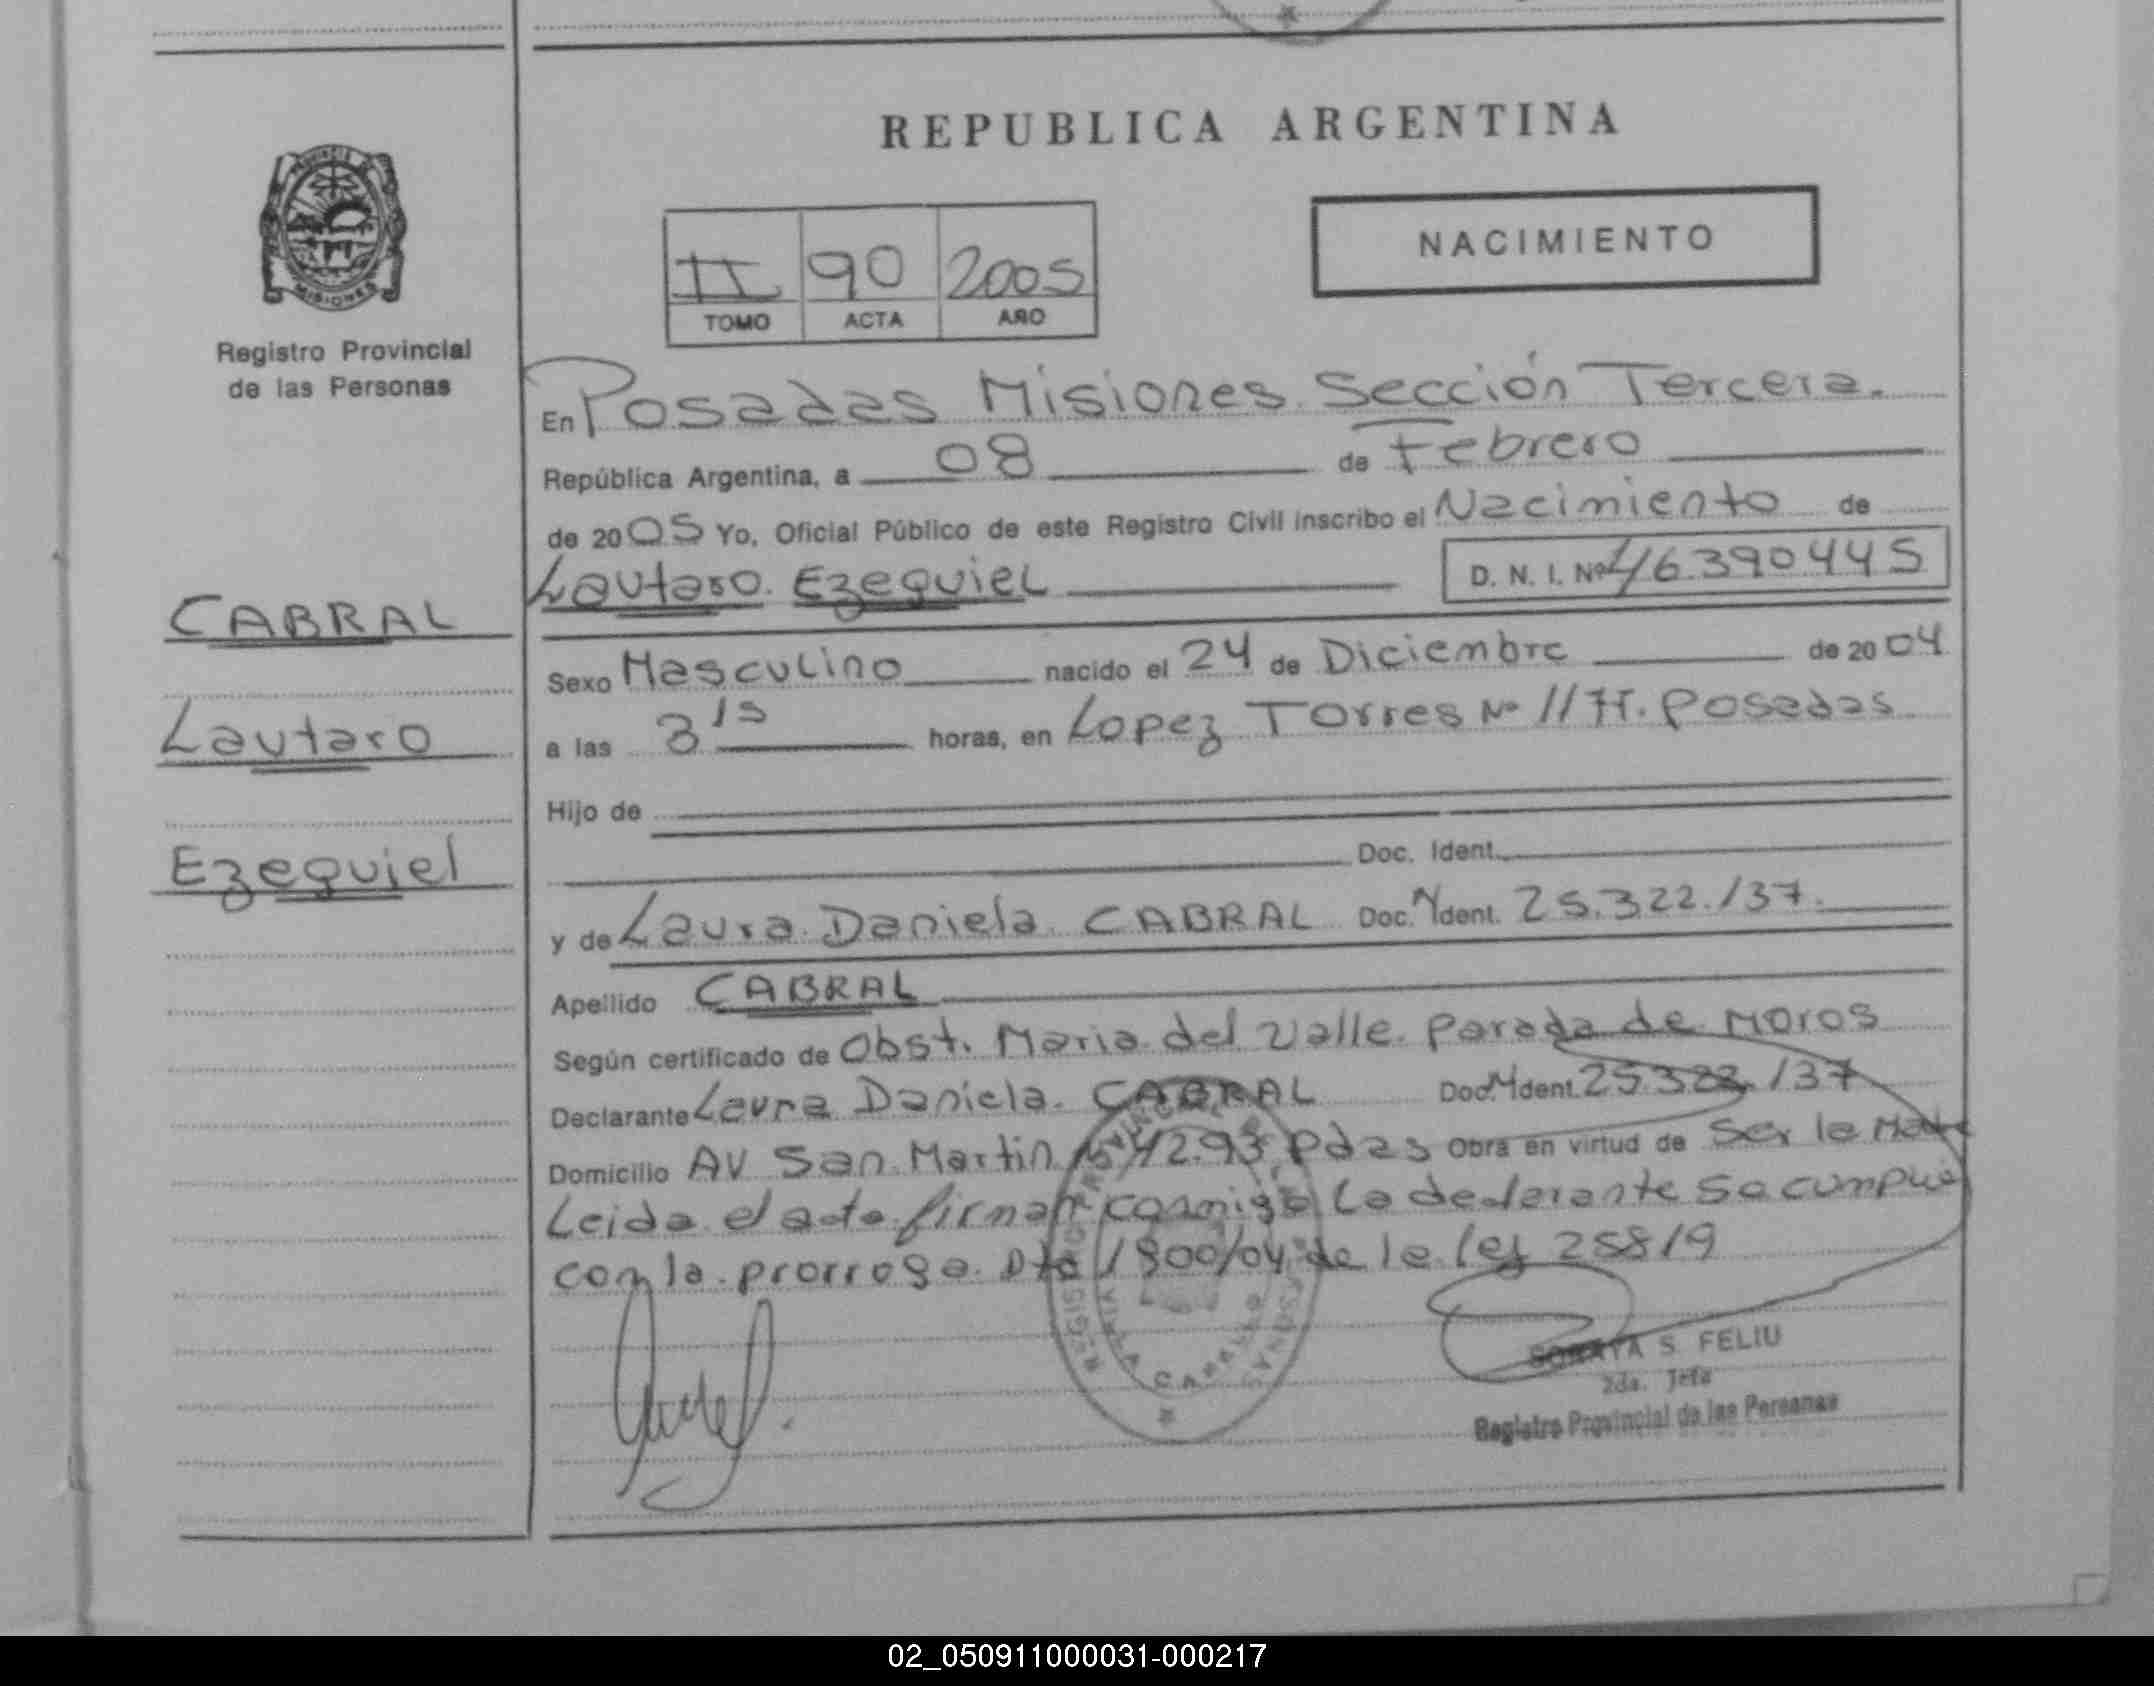 REPUBLICA ARGENTINA
PROVINCIA DE
MISIONES
Registro Provincial
de las Personas
II 90 2005
TOMO ACTA AÑO
NACIMIENTO
En Posadas Misiones Sección Tercera.
República Argentina, a 08 de Febrero
de 2005 Yo, Oficial Público de este Registro Civil inscribo el Nacimiento de
Lautaro Ezequiel D. N. I. Nº 46390445
CABRAL
Lautaro
Ezequiel
Sexo Masculino nacido el 24 de Diciembre de 2004
a las 3 15 horas, en Lopez Torres Nº 1177. Posadas
Hijo de
Doc. Ident.
y de Laura Daniela CABRAL Doc. Ident. 25.322.137.
Apellido CABRAL
Según certificado de Obst. Maria del Valle Parada de Moros
Declarante Laura Daniela CABRAL Doc. Ident. 25.322.137
Domicilio AV San Martin 4293 Pdas Obra en virtud de Ser la
Leida el acta firman conmigo La declarante Se
con la prorroga Dto 1800/04 de la ley 25819
SORAYA S. FELIU
2da. Jefa
Registro Provincial de las Personas
VILLA CABELLO
02_050911000031-000217